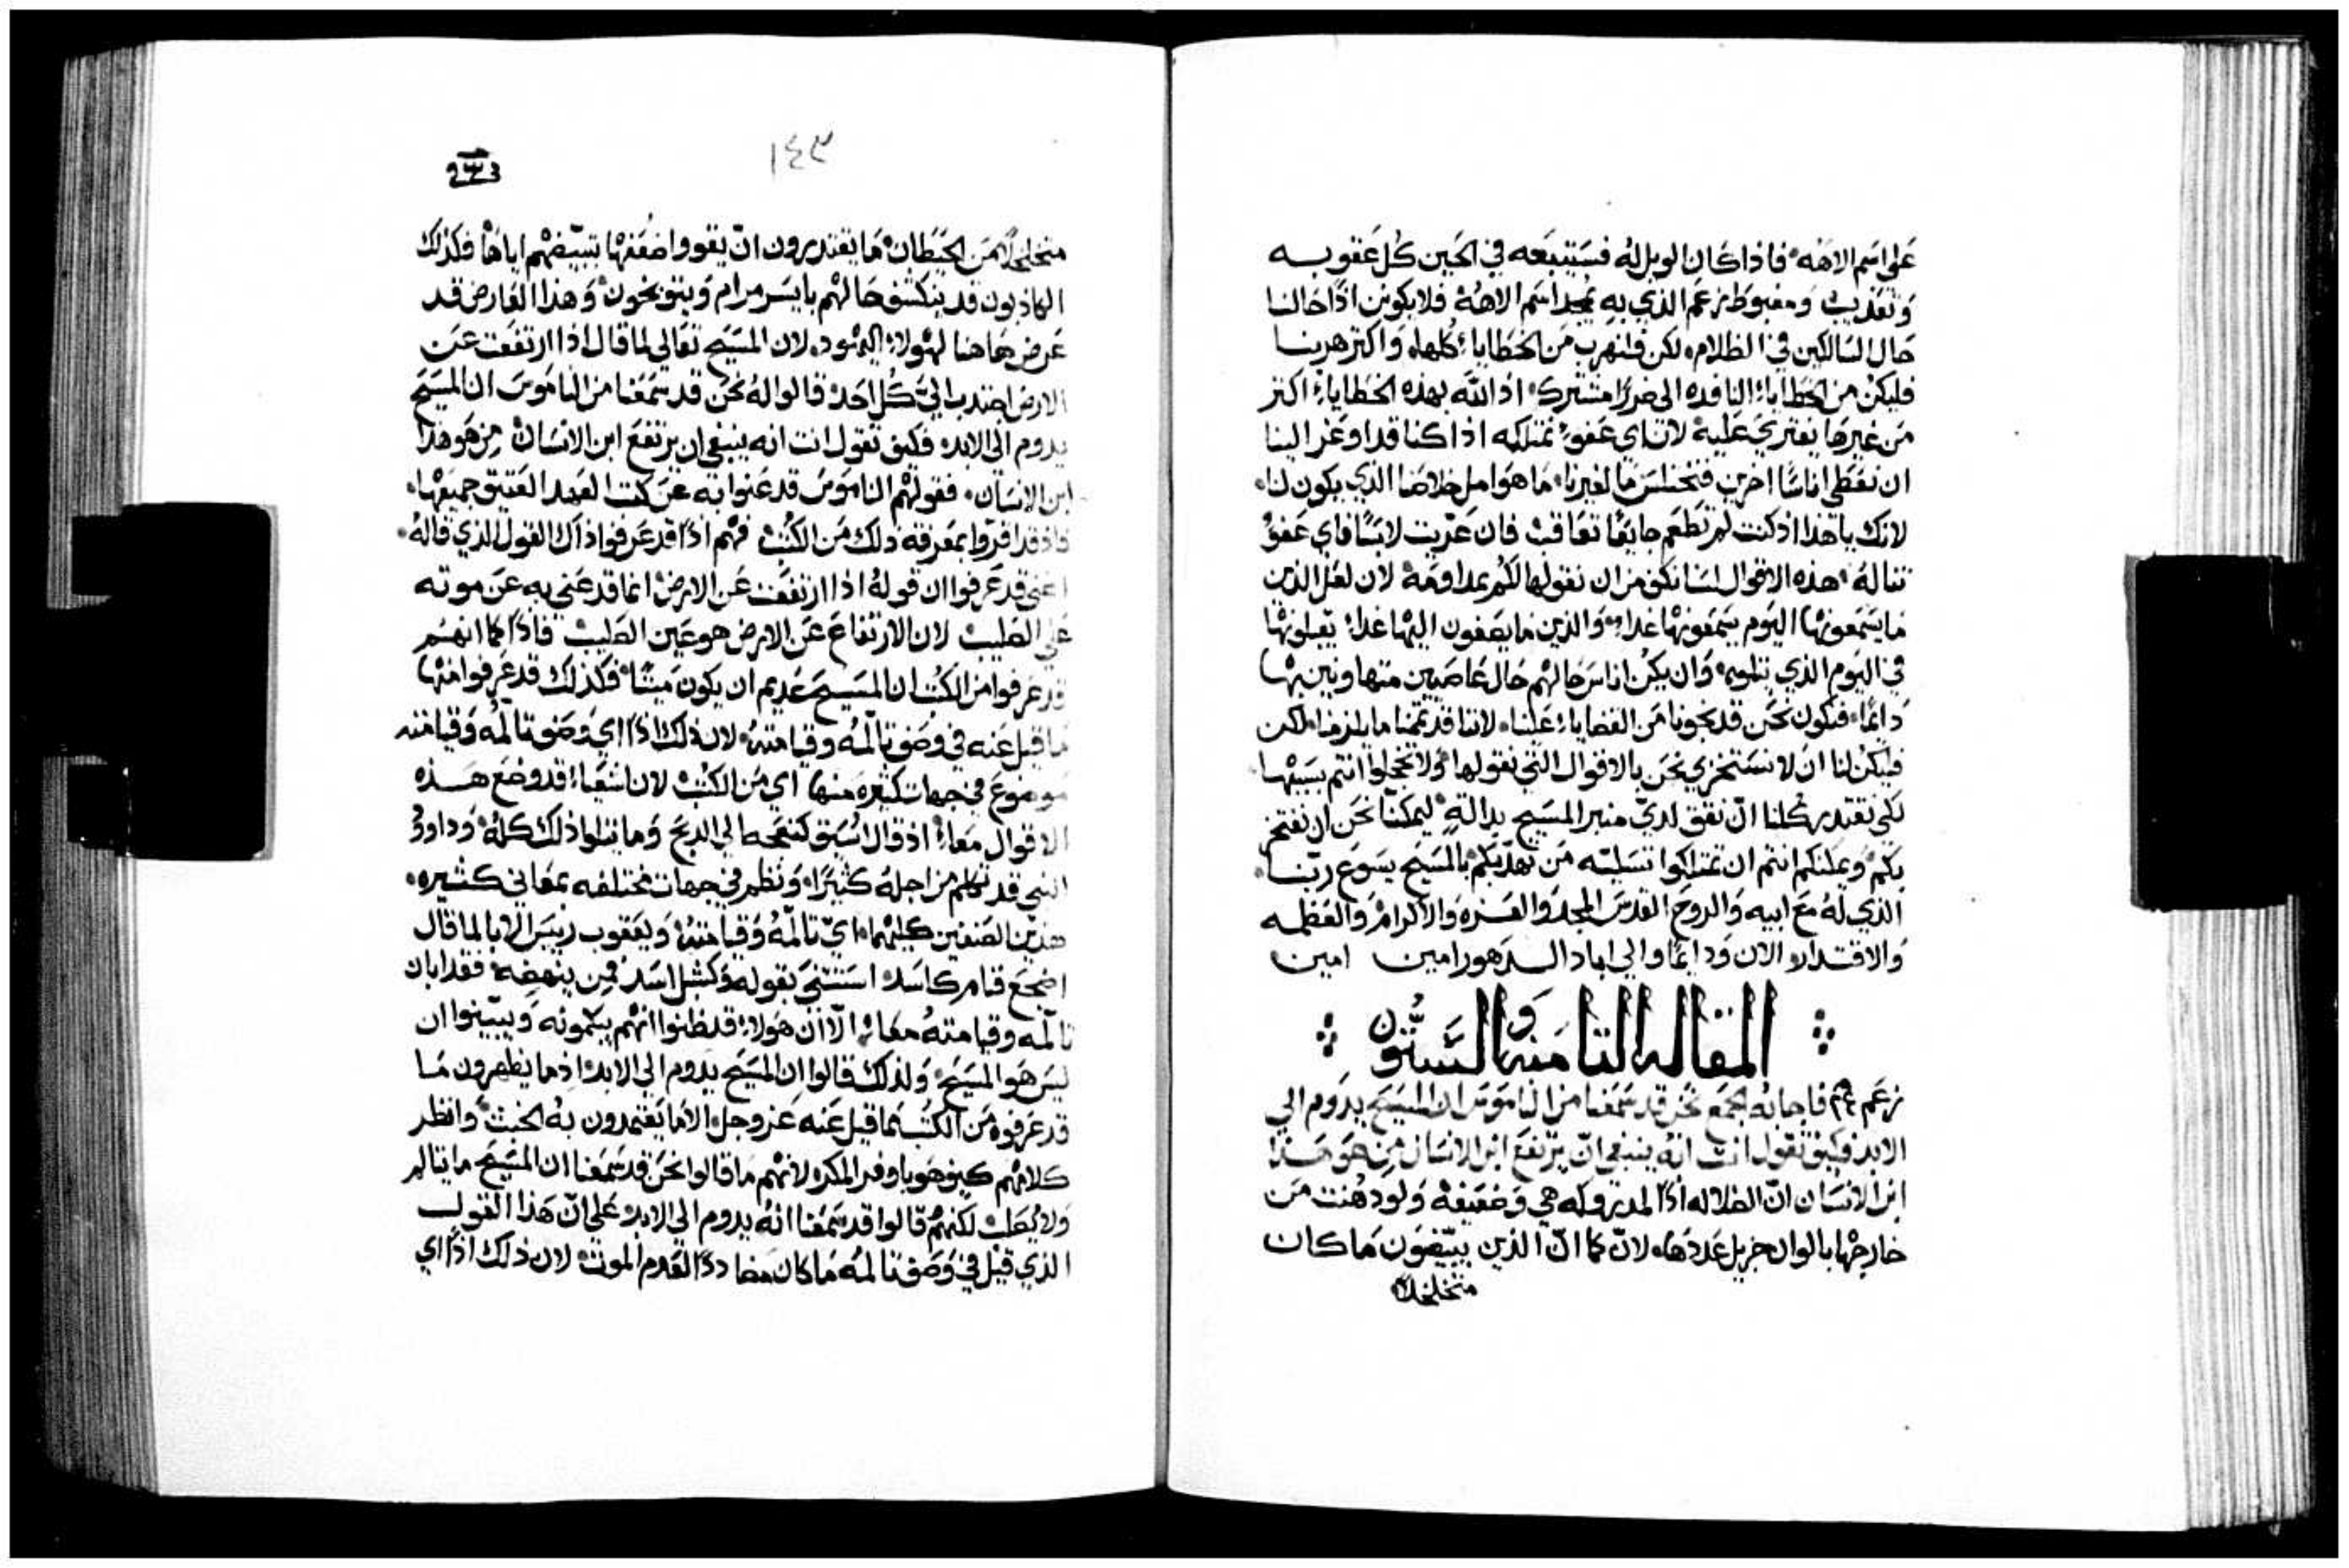 على اسم الاهه فاذا كان الويل له فستتبعه في الحين كل عقوبه
وتعذيب ومغبوط زعم الذي به يمجد اسم الاهه فلا يكونن اذًا حالنا
حال السالكين في الظلام لكن فلنهرب من الخطايا كلها واكثر هربنا
فليكن من الخطايا النافده الى ضررًا مشترك اذ الله بهذه الخطايا اكثر
من غيرها يفترى عليه لان اي عفو نمتلكه اذا كنا قد اوعز الينا
ان نعطي اناسًا اخرين فنختلس ما لغيرنا ما هو امل خلاصنا الذي يكون لنا
لانك يا هذا اذ كنت لم تطعم جايعًا تعاقب فان عريت لابسًا فاي عفو
تناله هذه الاقوال لسنا نكف من ان نقولها لكم بمداومة لان لعل الذين
ما يسمعونها اليوم يسمعونها غدا والذين ما يصغون اليها غدا يقبلونها
في اليوم الذي يتلوه وان يكن اناس حالهم حال عاصيين متهاونين بها
دايمًا فنكون نحن قد نجونا من القضايا علينا لاننا قد تممنا ما يلزمنا لكن
فليكن لنا ان لا نستخزي نحن بالاقوال التي نقولها ولا تخجلوا انتم بسببها
لكي نقتدر كلنا ان نقف لدي منبر المسيح بدالة ليمكننا نحن ان نفتخر
بكم ويمكنكم انتم ان تمتلكوا تسليه من تهذيبكم بالمسيح يسوع ربنا
الذي له مع ابيه والروح القدس المجد والعزه والاكرام والعظمه
والاقتدار الان ودايمًا والى اباد الدهور امين امين
المقاله الثامنه والستون
زعم فاجابه الجمع نحن قد سمعنا من الناموس ان المسيح يدوم الي
الابد فكيف تقول انت انه ينبغي ان يرتفع ابن الانسان من هو هذا
ابن الانسان ان الضلاله اذًا لمدروكه هي وضعيفة ولو دهنت من
خارجها بالوان جزيل عددها لان كما ان الذين يبيضون ما كان
متخلخلًا
١٤٣
متخلخلًا من الحيطان ما يقتدرون ان يقووا ضعفها بتبييضهم اياها فكذلك
الكاذبون قد ينكشف حالهم بايسر مرام ويتوبخون وهذا العارض قد
عرض هاهنا لهولاء اليهود لان المسيح تعالي لما قال اذا ارتفعت عن
الارض اجتدب الي كل احد قالوا له نحن قد سمعنا من الناموس ان المسيح
يدوم الى الابد فكيف تقول انت انه ينبغي ان يرتفع ابن الانسان من هو هذا
ابن الانسان فقولهم الناموس قد عنوا به عن كتب العهد العتيق جميعها
فاذ قد اقروا بمعرفة ذلك من الكتب فهم اذًا قد عرفوا ذاك القول الذي قاله
اعني قد عرفوا ان قوله اذا ارتفعت عن الارض انما قد عني به عن موته
علي الصليب لان الارتفاع عن الارض هو عين الصليب فاذًا كما انهم
قد عرفوا من الكتب ان المسيح عديم ان يكون ميتًا فكذلك قد عرفوا منها
ما قيل عنه في وصف تالمه وقيامته لان ذلك اذًا اي وصف تالمه وقيامته
موضوع في جهات كثيره منها اي من الكتب لان اشعيا قد وضع هذه
الاقوال معا اذ قال سيق كنعجه الي الدبح وما يتلوا ذلك كله وداوود
النبي قد تكلم من اجله كثيرًا ونظم في جهات مختلفه بمعاني كثيره
هذين الصنفين كليهما اي تالمه وقيامته ويعقوب رييس الابا لما قال
اضجع فنام كاسد استثني بقوله وكشبل اسد فمن ينهضه فقد ابان
تالمه وقيامته معا الا ان هولاء قد ظنوا انهم يبكمونه ويبينوا ان
ليس هو المسيح ولذلك قالوا ان المسيح يدوم الي الابد اذ ما يظهرون ما
قد عرفوه من الكتب مما قيل عنه عز وجل الا ما يعتمدون به الخبث وانظر
كلامهم كيف هو باوفر المكر لانهم ما قالوا نحن قد سمعنا ان المسيح ما يتالم
ولا يصلب لكنهم قالوا قد سمعنا انه يدوم الى الابد علي ان هذا القول
الذي قيل في وصف تالمه ما كان مضاددًا لعدم الموت لان ذلك اذًا اي